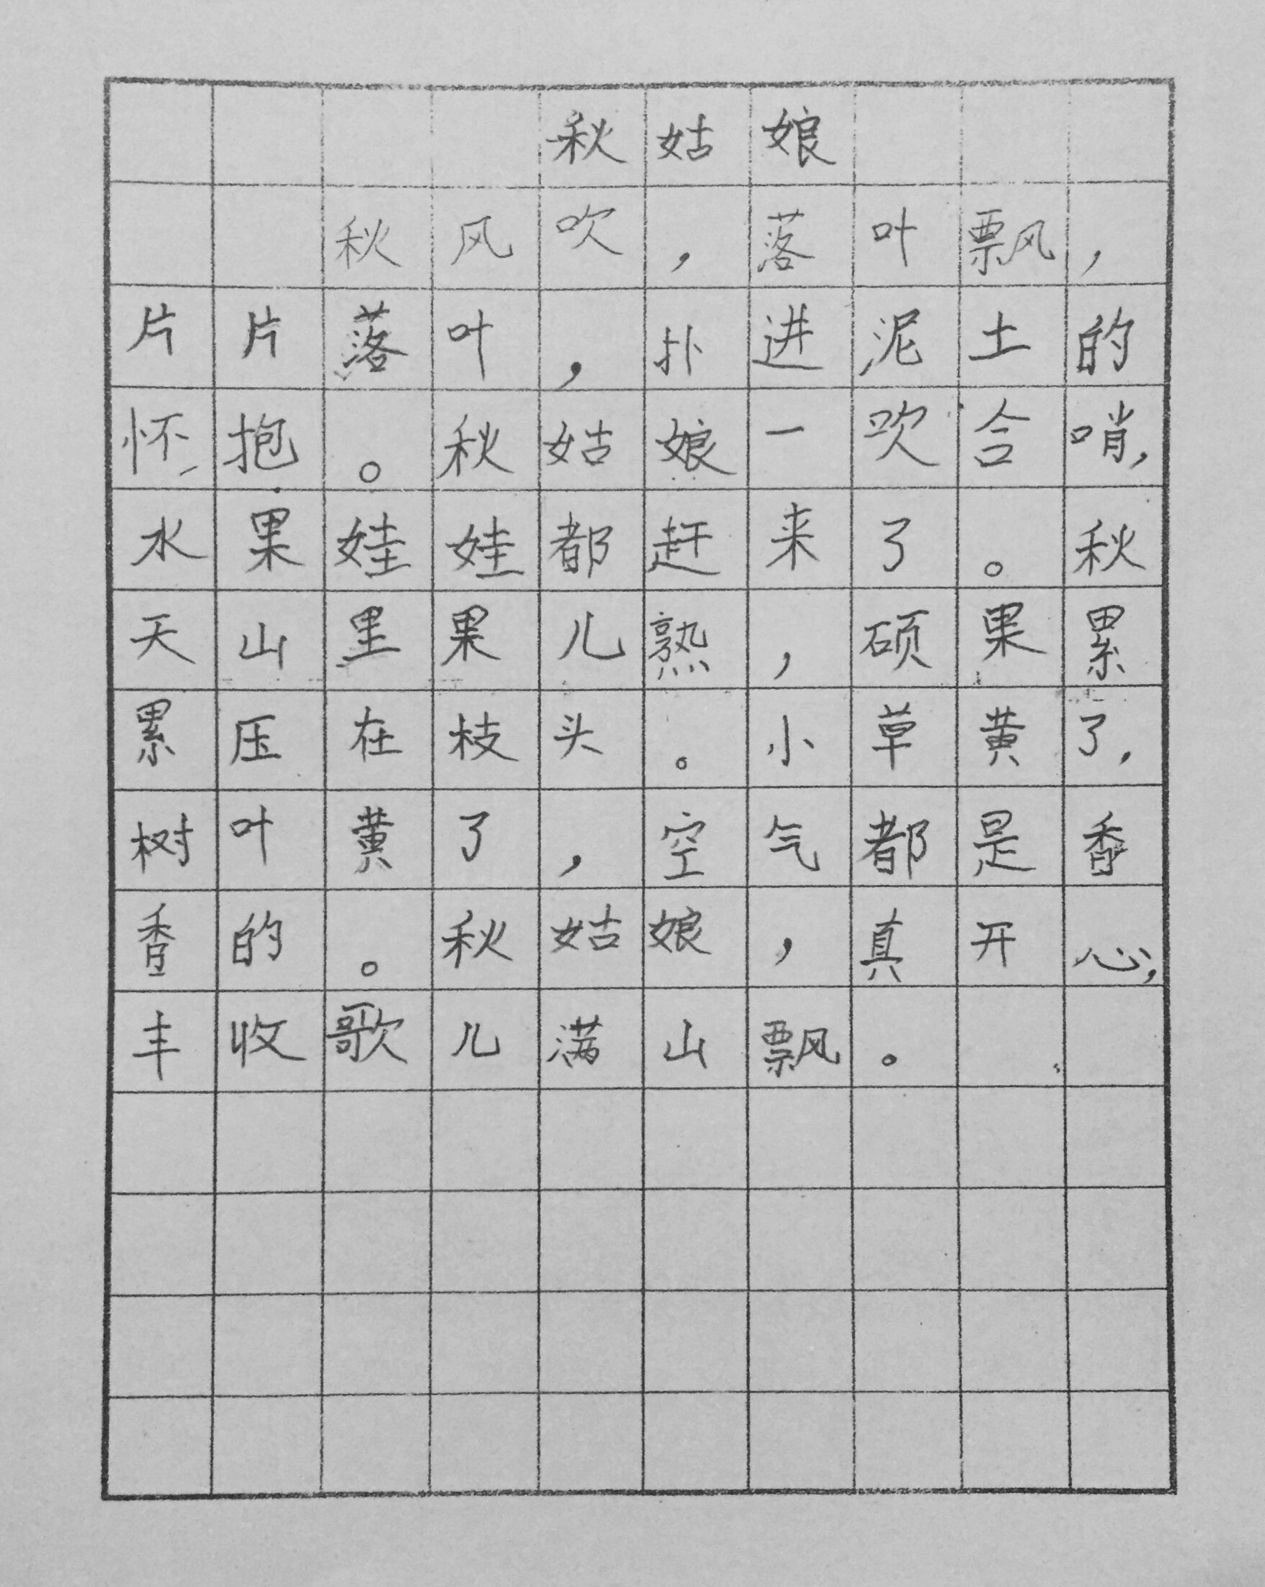 秋姑娘
秋风吹，落叶飘，
片片落叶，扑进泥土的
怀抱。秋姑娘一吹合哨，
水果娃娃都赶来了。秋
天山里果儿熟，硕果累
累压在枝头。小草黄了，
树叶黄了，空气都是香
香的。秋姑娘，真开心，
丰收歌儿满山飘。